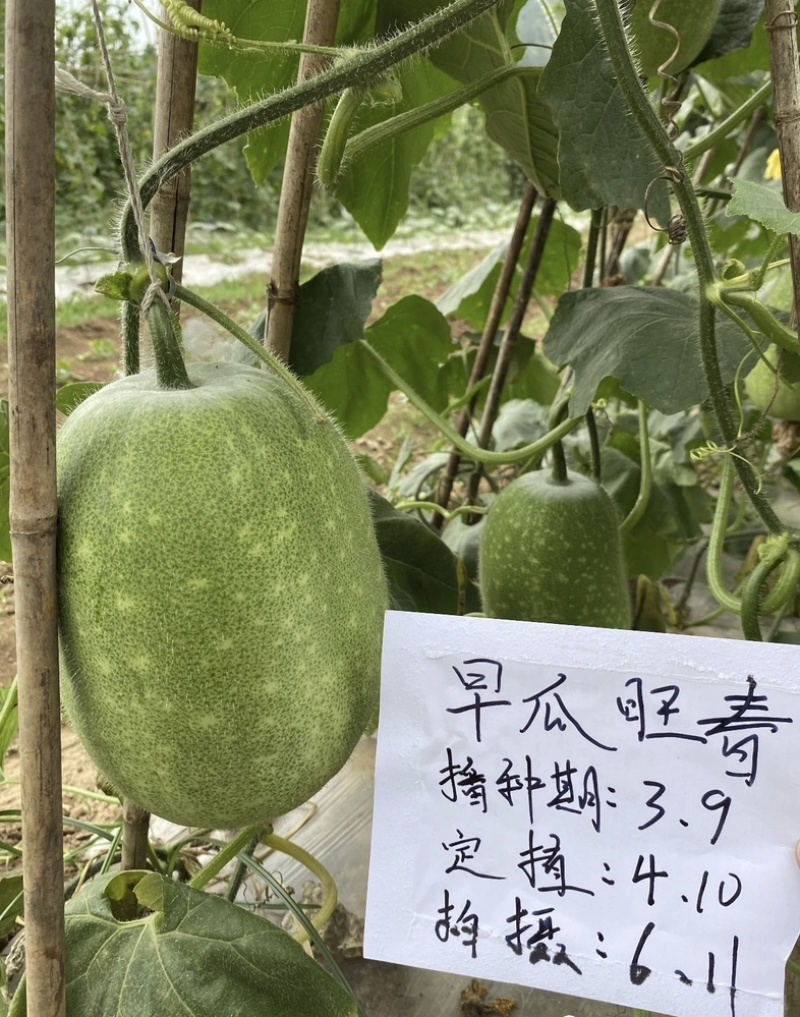 早瓜旺春
播种期:3.9
定植:4.10
拍摄:6.11